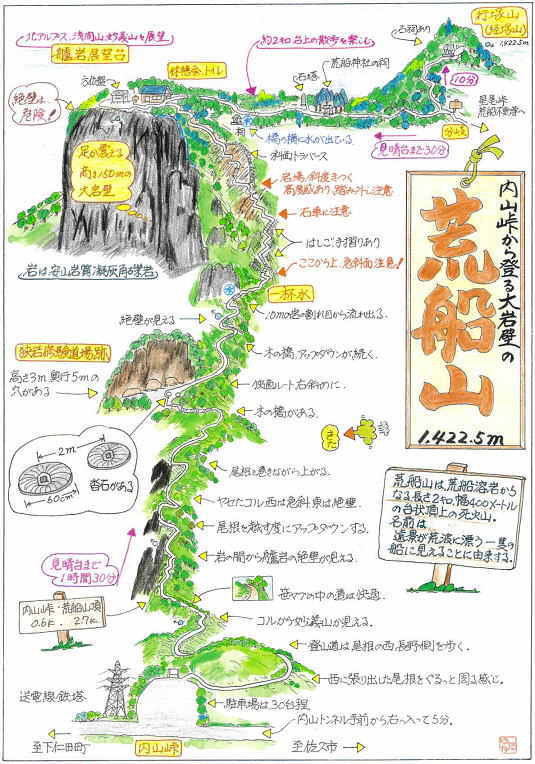 北アルプス、浅間山、妙義山を展望
艫岩展望台
方位盤
休憩舎、トイレ
約2キロ、台上の散歩を楽しむ
石塔
荒船神社の祠
石祠あり
行塚山
(経塚山)
1,422.5m
10分
星尾峠
荒船不動堂へ
分岐点
見晴台まで30分
絶壁は
危険!
祠
橋の横に水が出ている。
斜面トラバース
足が震える
高さ150mの
大岩壁
岩場、斜度きつく
高度感あり、踏みハズし注意
石車に注意
はしご手摺りあり
ここから上、急斜面注意!
岩は、安山岩質凝灰角礫岩
一杯水
10mの岩の割れ目から流れ出る。
絶壁が見える
木の橋、アップダウンが続く。
狭岩修験道場跡
高さ3m 奥行5mの
穴がある
迂回ルート右斜めに。
木の橋がある。
きた
2m
60cm
沓石がある
尾根を巻きながら上がる。
ヤセたコル西は急斜東は絶壁
尾根を越す度にアップダウンする。
岩の間から艫岩の絶壁が見える。
見晴台まで
1時間30分
笹ヤブの中の道は快適。
コルから妙義山が見える。
内山峠・荒船山頂
0.6K. 2.7K.
登山道は尾根の西(長野側)を歩く。
西に張り出した尾根をぐるっと周る感じ。
送電線・鉄塔
駐車場は30台程
内山トンネル手前から右へ入って5分。
至下仁田町
内山峠
至佐久市
内山峠から登る大岩壁の
荒船山
1,422.5m
荒船山は、荒船溶岩から
なる長さ2キロ、幅400メートル
の台状頂上の死火山。
名前は
遠景が荒波に漂う一隻の
船に見えることに由来する。